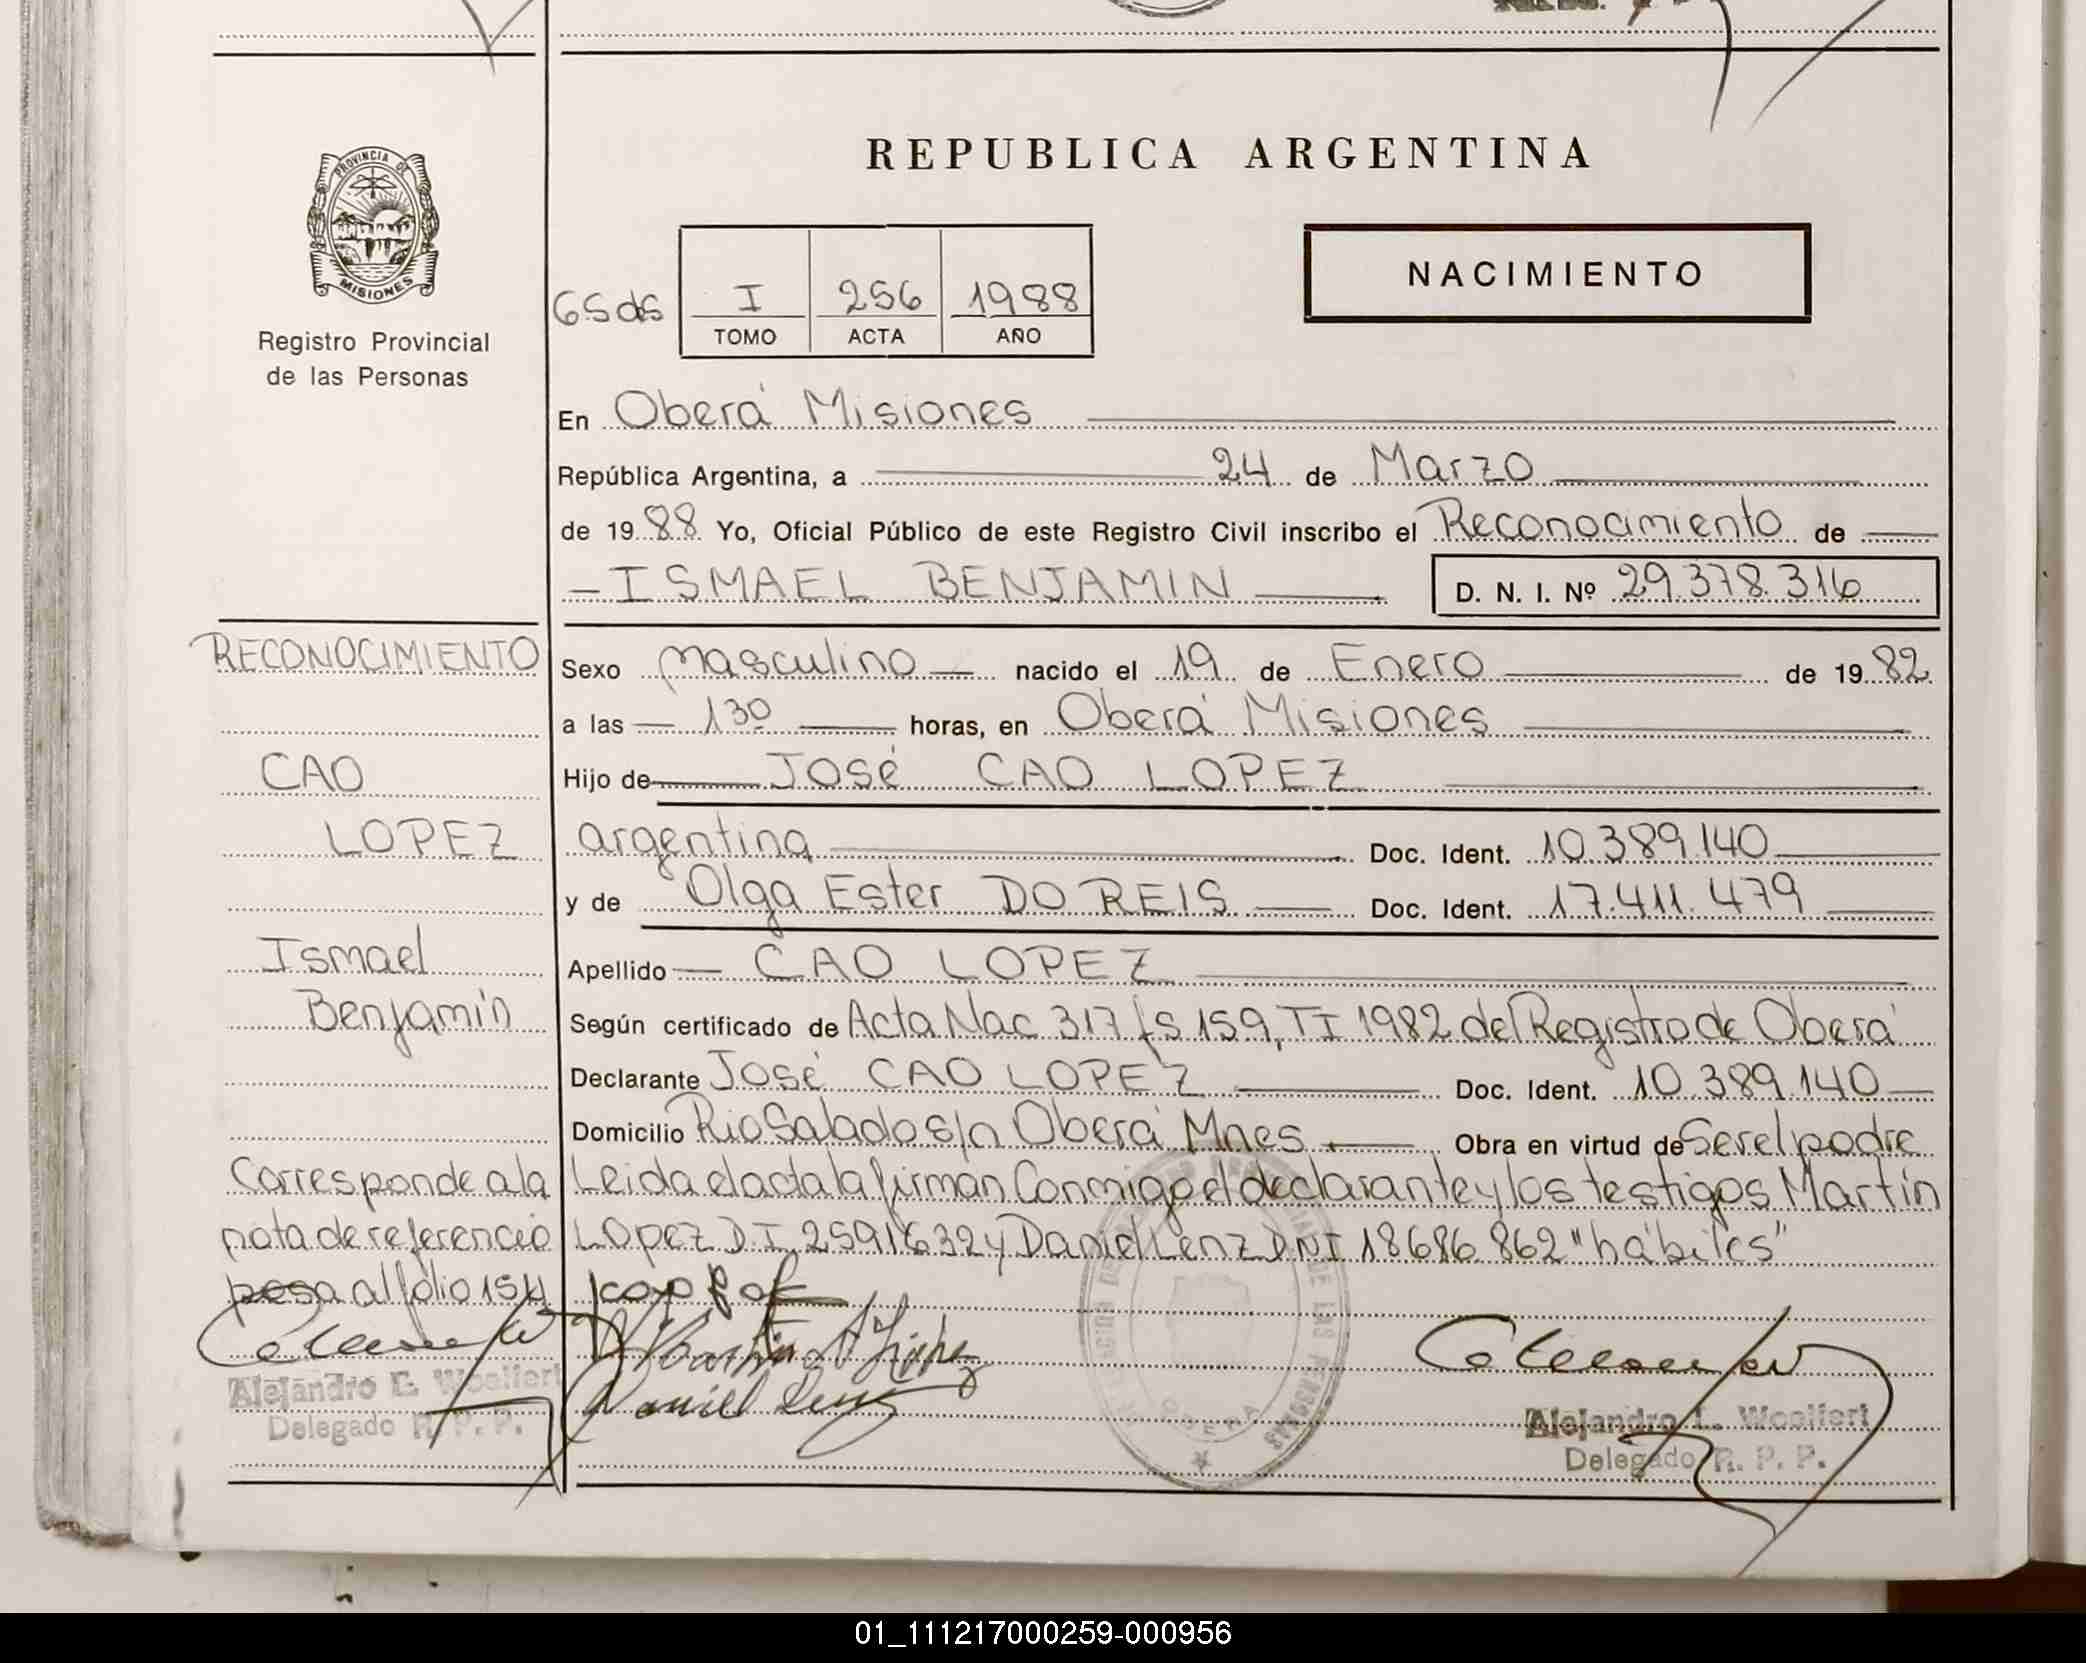 PROVINCIA DE
MISIONES
Registro Provincial
de las Personas
REPUBLICA ARGENTINA
NACIMIENTO
I 256 1988
TOMO ACTA AÑO
En Oberá Misiones
República Argentina, a 24 de Marzo
de 1988 Yo, Oficial Público de este Registro Civil inscribo el Reconocimiento de
ISMAEL BENJAMIN D. N. I. Nº 29.378.316
RECONOCIMIENTO
CAO
LOPEZ
Ismael
Benjamín
Corresponde a la
nota de referencia
pasa al folio 154
Alejandro E. Woelfert
Delegado R. P. P.
Sexo masculino nacido el 19 de Enero de 1982
a las 130 horas, en Oberá Misiones
Hijo de José CAO LOPEZ
argentina Doc. Ident. 10.389.140
y de Olga Ester DO REIS Doc. Ident. 17.411.479
Apellido CAO LOPEZ
Según certificado de Acta Nac 317 fs 159, T I 1982 del Registro de Oberá
Declarante José CAO LOPEZ Doc. Ident. 10.389.140
Domicilio Rio Salado s/n Oberá Mnes. Obra en virtud de Ser el padre
Leida el acta la firman Conmigo el declarante y los testigos Martín
LOpez D.I. 2591632 y Daniel Lenz DNI 18686.862 "hábiles"
Daniel Lenz
OBERA
DE LAS PERSONAS
Alejandro E. Woelfert
Delegado R. P. P.
01_111217000259-000956